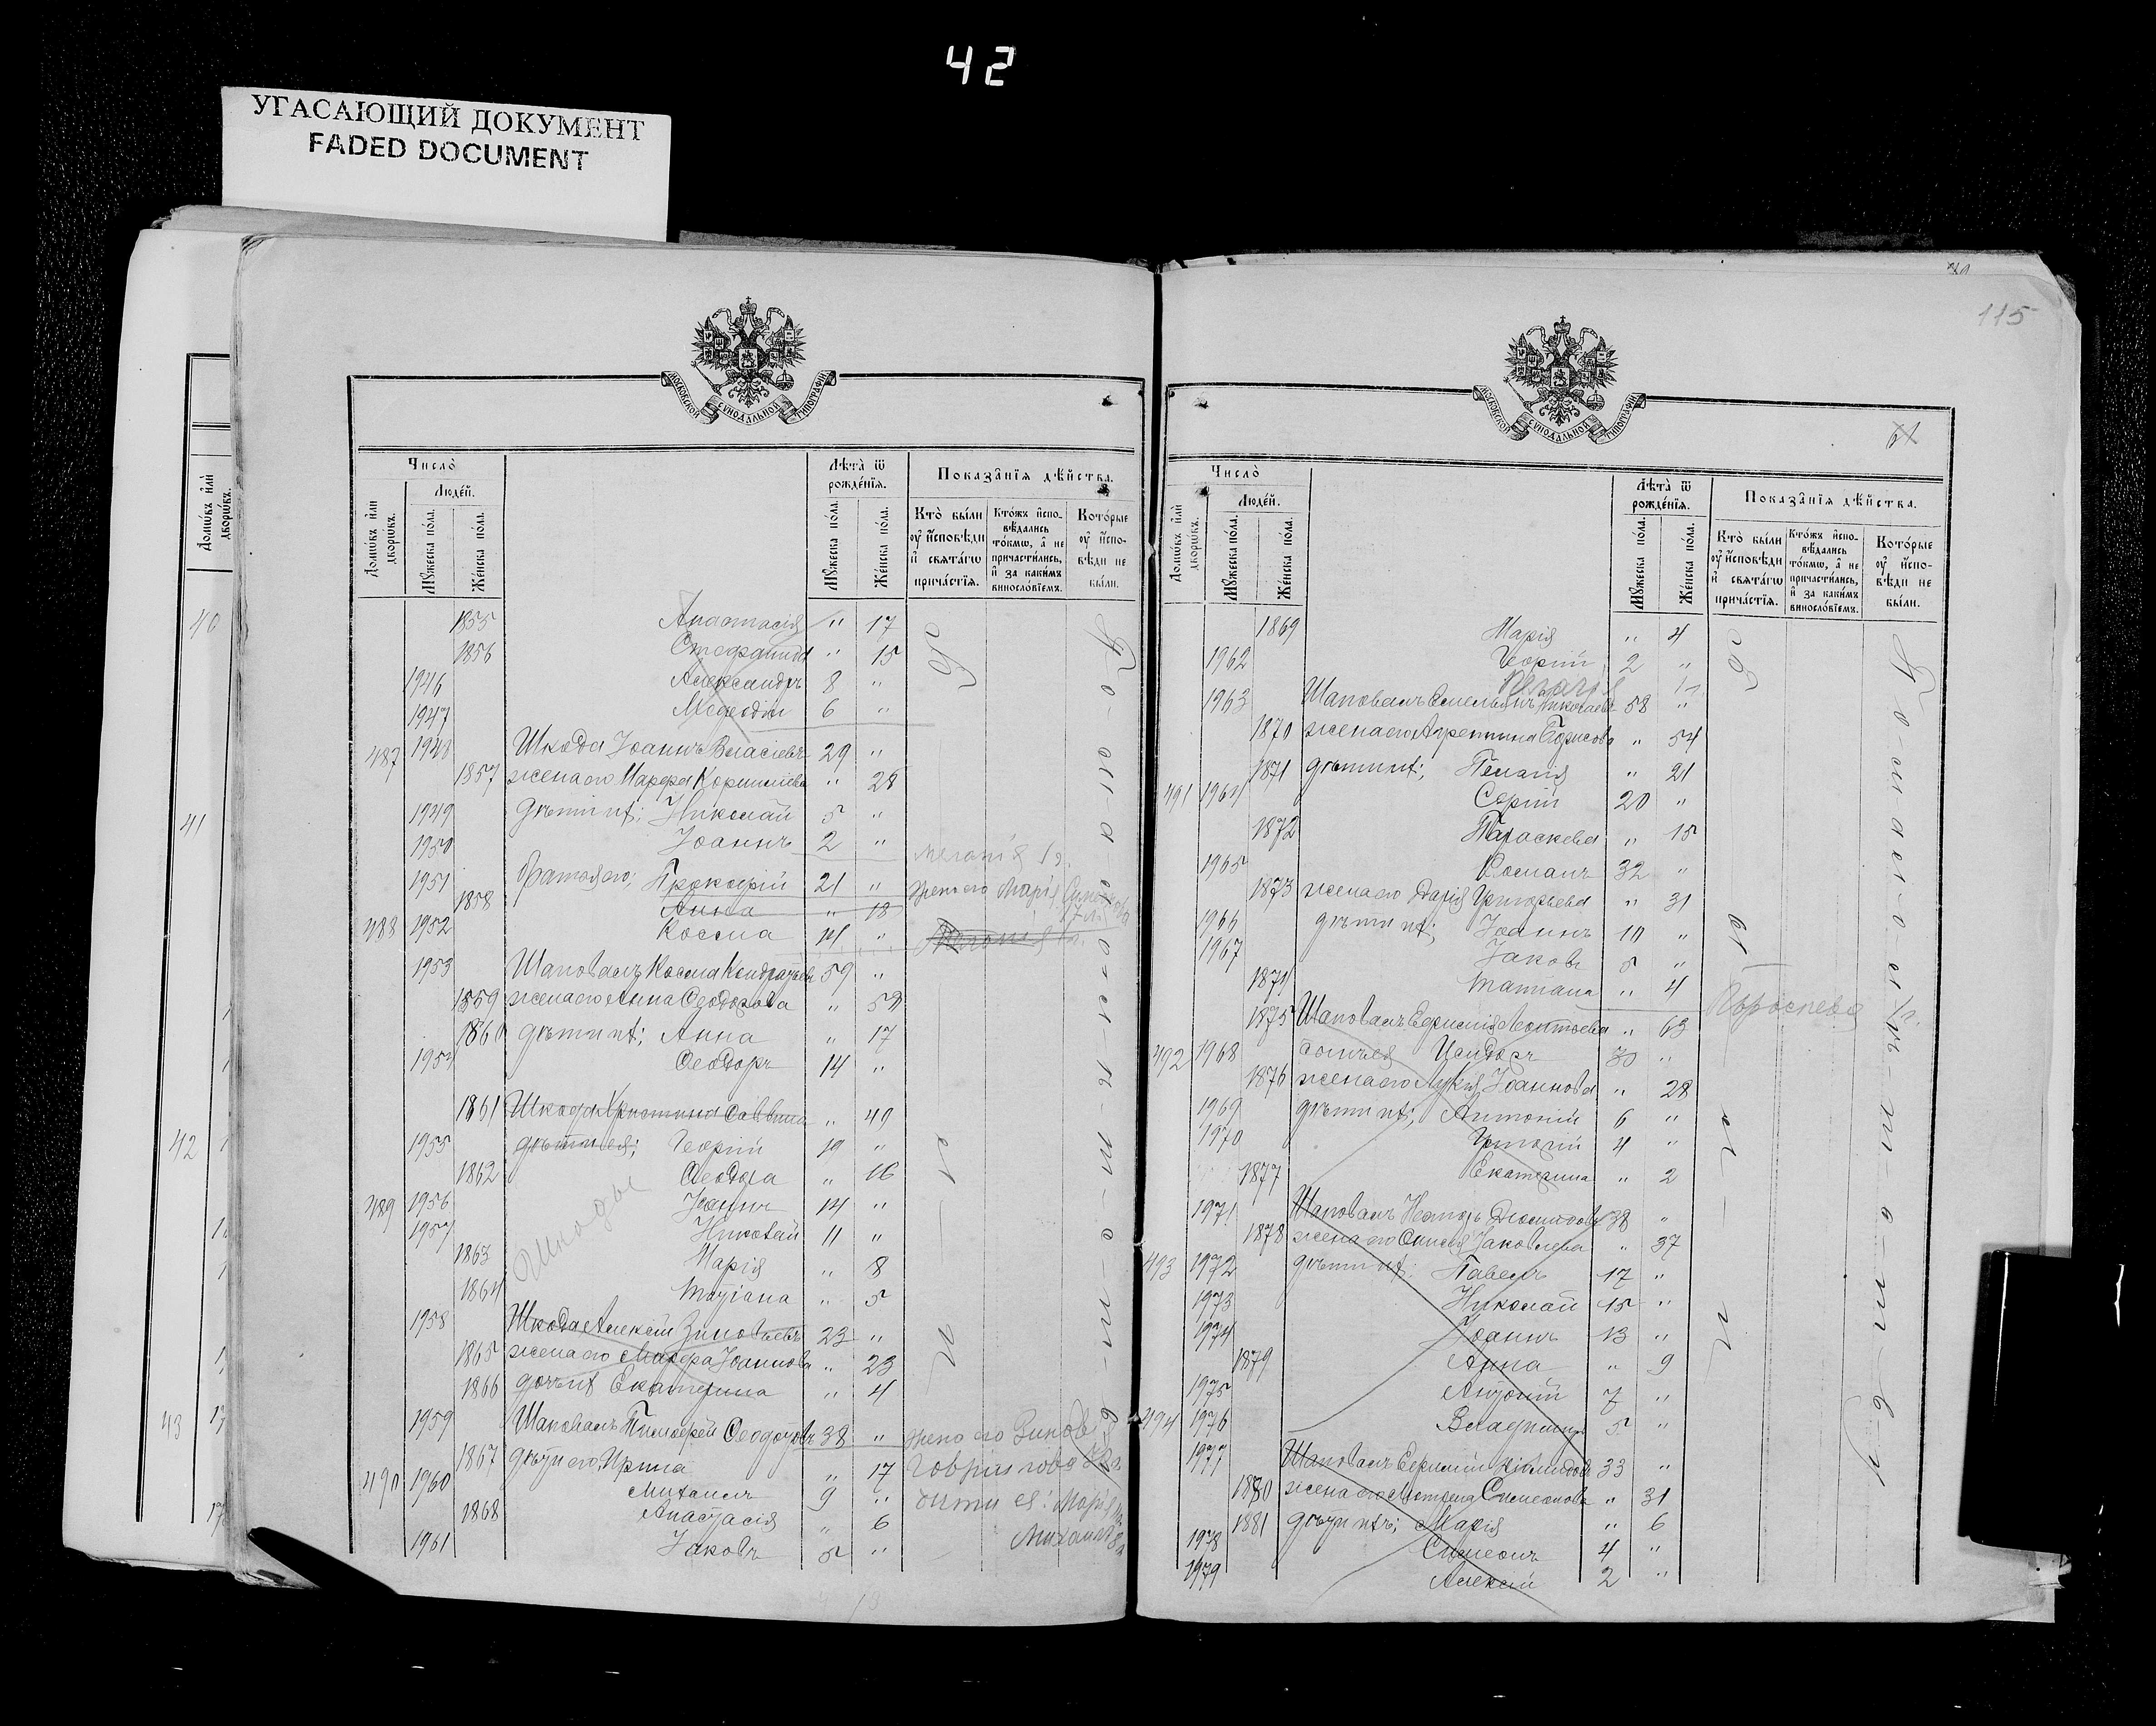 42
УГАСАЮЩИЙ ДОКУМЕНТ
FADED DOCUMENT
40
41
42
43
МОСКОВСКОЙ СѴНОДАЛЬНОЙ ТИПОГРАФІИ
Число̀
Людѐй.
Домѡ́въ и҆лѝ дворѡ́въ.
Мꙋ́жеска по́ла.
Же́нска по́ла.
Лѣта̀ ѿ рожде́нїѧ.
Мꙋ́жеска по́ла.
Же́нска по́ла.
Показа̑нїѧ дѣ́йства.
Кто̀ бы́ли оу҆ и҆сповѣ́ди и҆ свѧта́гѡ прича́стїѧ.
Кто́жъ и҆сповѣ́дались то́кмѡ, а҆ не причасти́лись, и҆ за каки́мъ винослѡ́вїемъ.
Кото́рые оу҆ и҆сповѣ́ди не бы́ли.
1855 Анастасія " 17
1856 Стефанида " 15
1946 Александръ 8 "
1947 Меѳодій 6 "
487 1948 Шкода Іоаннъ Власіевъ 29 "
1857 жена его Марѳа Корниліева " 28
1949 дѣти ихъ; Николай 5 "
1950 Іоаннъ 2 "
1951 братья его; Прокофій 21 " жена его Марія
1858 Анна " 18
488 1952 Косма 14 "
1953 Шаповалъ Косма Кондратьевъ 59 "
1859 жена его Анна Ѳеодорова " 59
1860 дѣти ихъ; Анна " 17
1954 Ѳеодоръ 14 "
1861 Шкода Христина Саввина " 49
1955 дѣти ея; Георгій 19 "
1862 Ѳеодора " 16
489 1956 Іоаннъ 14 "
1957 Николай 11 "
1863 Марія " 8
1864 Татіана " 5
1958 Шкода Алексій Зиновьевъ 23 "
1865 жена его Марѳа Іоаннова " 23
1866 дочь ихъ Екатерина " 4
1959 Шаповалъ Тимоѳей Ѳеодоровъ 38 " жена его Зинов
1867 дѣти его; Ирина " 17 Гаврилова
490 1960 Михаилъ 9 " дити ея: Марія
1868 Анастасія " 6 Михаилъ
1961 Іаковъ 5 "
115
61
МОСКОВСКОЙ СѴНОДАЛЬНОЙ ТИПОГРАФІИ
Число̀
Людѐй.
Домѡ́въ и҆лѝ дворѡ́въ.
Мꙋ́жеска по́ла.
Же́нска по́ла.
Лѣта̀ ѿ рожде́нїѧ.
Мꙋ́жеска по́ла.
Же́нска по́ла.
Показа̑нїѧ дѣ́йства.
Кто̀ бы́ли оу҆ и҆сповѣ́ди и҆ свѧта́гѡ прича́стїѧ.
Кто́жъ и҆сповѣ́дались то́кмѡ, а҆ не причасти́лись, и҆ за каки́мъ винослѡ́вїемъ.
Кото́рые оу҆ и҆сповѣ́ди не бы́ли.
1869 Марія " 4
1962 Георгій 2 "
1963 Шаповалъ Емельянъ Николаевъ 58 "
1870 жена его Агрепина Борисова " 54
1871 дѣти ихъ; Пелагія " 21
491 1964 Сергій 20 "
1872 Параскева " 15
1965 Романъ 32 "
1873 жена его Дарія Григорьева " 31
1966 дѣти ихъ; Іоаннъ 10 "
1967 Іаковъ 5 "
1874 Татіана " 4
1875 Шаповалъ Евфимія Леонтьева " 63
492 1968 сынъ ея Исидоръ 30 "
1876 жена его Лукія Іоаннова " 28
1969 дѣти ихъ; Антоній 6 "
1970 Григорій 4 "
1877 Екатерина " 2
1971 Шаповалъ Несторъ Діомидовъ 38 "
1878 жена его Онисія Іаковлева " 37
493 1972 дѣти ихъ: Павелъ 17 "
1973 Николай 15 "
1974 Іоаннъ 13 "
1879 Анна " 9
1975 Андрей 7 "
494 1976 Владиміръ 5 "
1977 Шаповалъ Евфимій Діомидовъ 33 "
1880 жена его Мотрона Симеонова " 31
1881 дѣти ихъ; Марія " 6
1978 Симеонъ 4 "
1979 Алексій 2 "